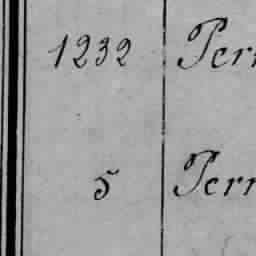 1232 Perr
5 Perr